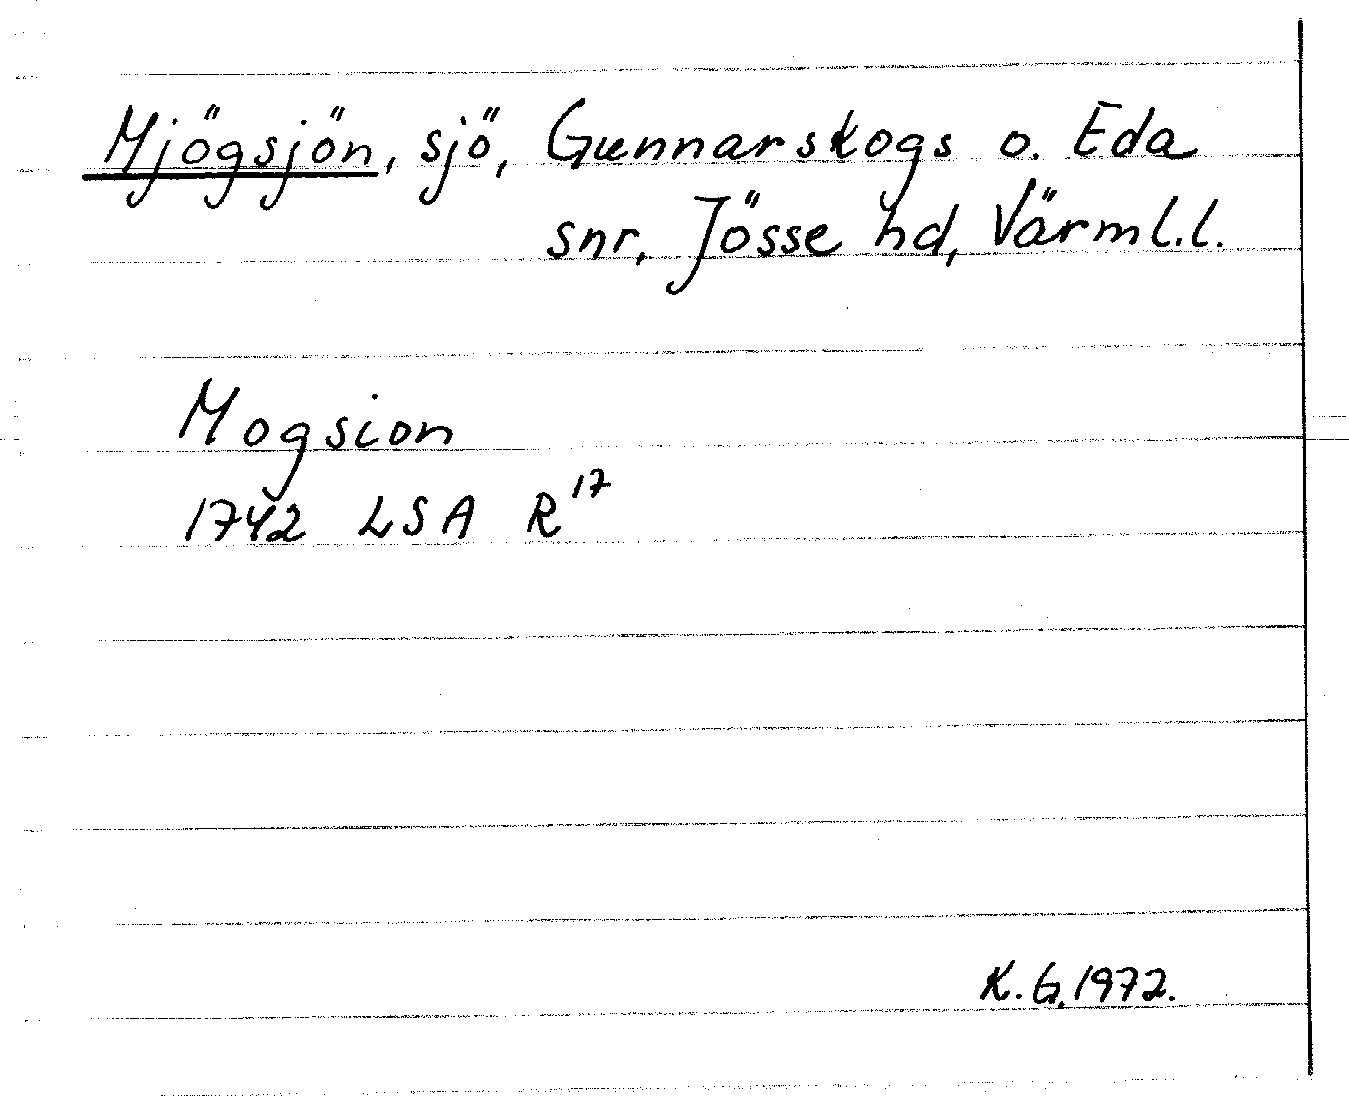 Mjögsjön, sjö, Gunnarskogs o. Eda
snr, Jösse hd, Värml.l.
Mogsion
1742 LSA R¹⁷
K.G.1972.